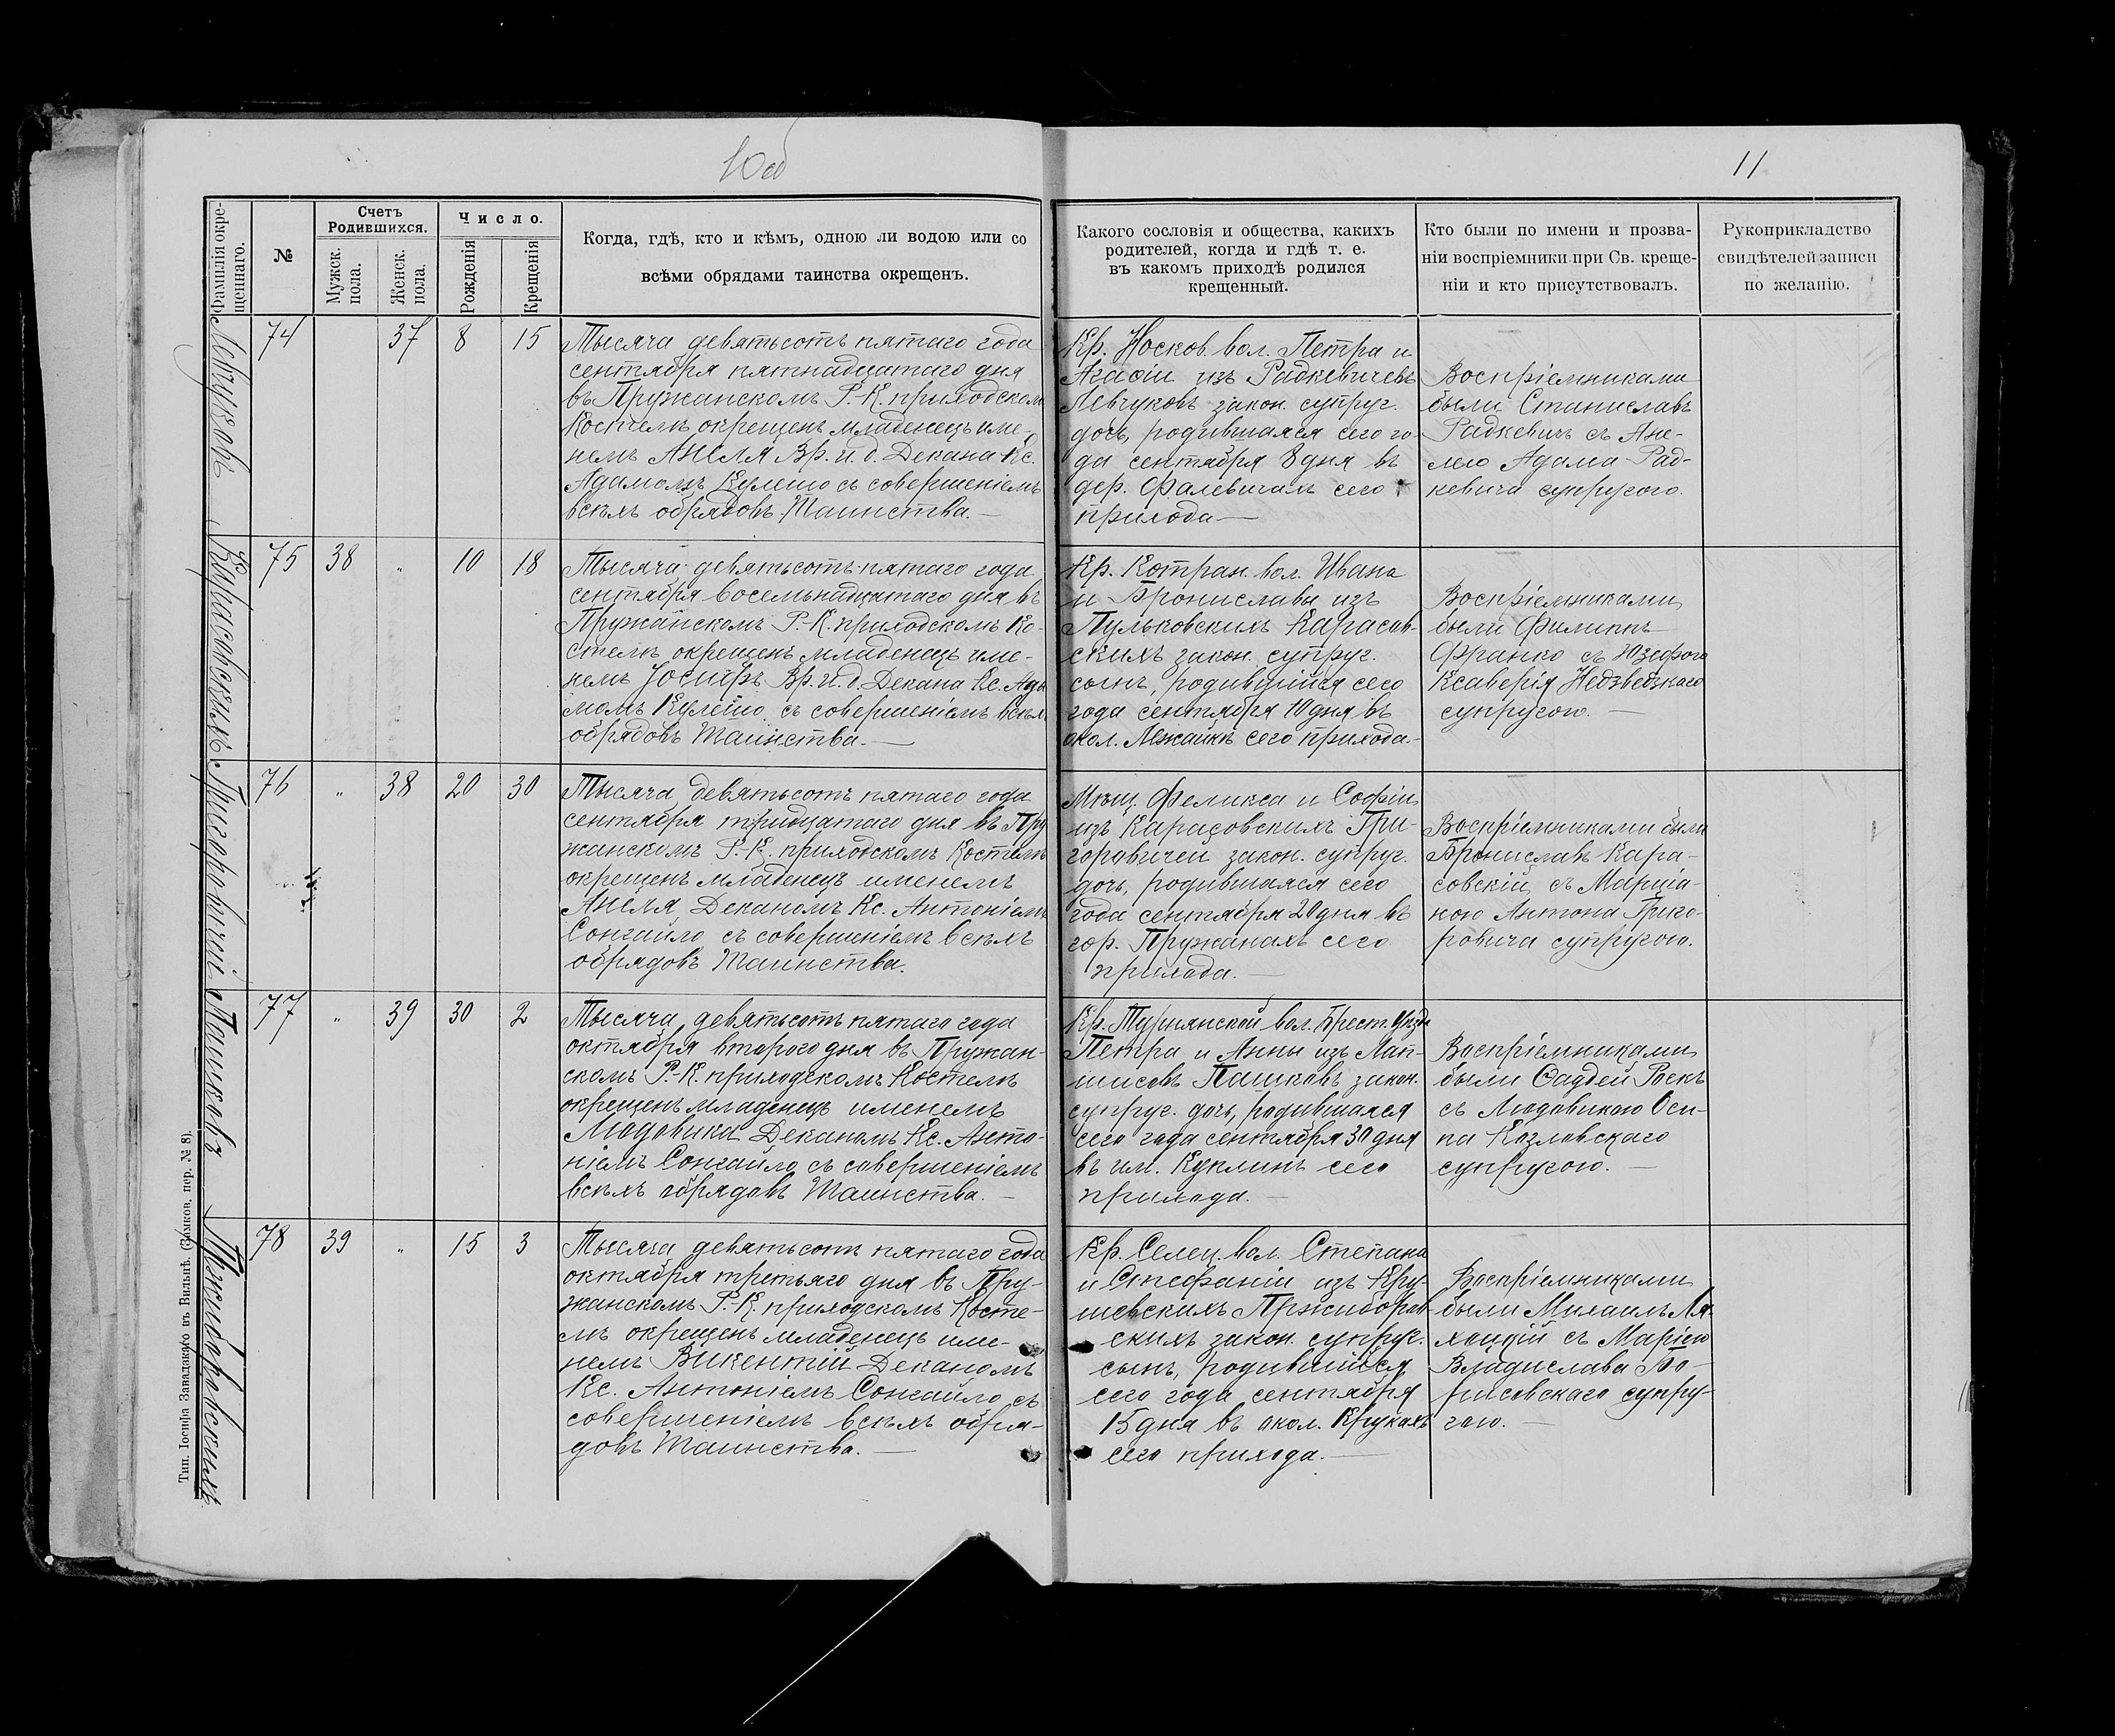 10об
11
Фамилія окре-
щеннаго.
№
Счетъ
Родившихся.
Мужск.
пола.
Женск.
пола.
Число.
Рожденія
Крещенія
Когда, гдѣ, кто и кѣмъ, одною ли водою или со
всѣми обрядами таинства окрещенъ.
Какого сословія и общества, какихъ
родителей, когда и гдѣ т. е.
въ какомъ приходѣ родился
крещенный.
Кто были по имени и прозва-
ніи воспріемники при Св. креще-
ніи и кто присутствовалъ.
Рукоприкладство
свидѣтелей записи
по желанію.
Левчуковъ
74 37 8 15
Тысяча девятьсотъ пятаго года
сентября пятнадцатаго дня
въ Пружанскомъ Р.-К. приходскомъ
Костелѣ окрещенъ младенецъ име-
немъ Анеля Вр. и. д. Декана Кс.
Адамомъ Кулешо съ совершеніемъ
всѣхъ обрядовъ Таинства.—
Кр. Носков. вол. Петра и
Агафіи изъ Радкевичевъ
Левчуковъ закон. супруг.
дочь, родившаяся сего го-
да сентября 8 дня въ
дер. Фалевичахъ сего
прихода—
Воспріемниками
были Станиславъ
Радкевичъ съ Ане-
лею Адама Рад-
кевича супругою.
Карасовскихъ
75 38 „ 10 18
Тысяча девятьсотъ пятаго года
сентября восемьнадцатаго дня въ
Пружанскомъ Р.-К. приходскомъ Ко-
стелѣ окрещенъ младенецъ име-
немъ Іосифъ Вр. и. д. Декана Кс. Ада
момъ Кулешо съ совершеніемъ всѣхъ
обрядовъ Таинства.—
Кр. Котран. вол. Ивана
и Брониславы изъ
Пульковскихъ Карасов-
скихъ закон. супруг.
сынъ, родившійся сего
года сентября 10 дня въ
окол. Лежайкѣ сего прихода—
Воспріемниками
были Филиппъ
Франко съ Юзефою
Ксаверія Недзведзкаго
супругою.—
Григоровичей
76 „ 38 20 30
Тысяча девятьсотъ пятаго года
сентября тридцатаго дня въ Пру
жанскомъ Р.-К. приходскомъ Костелѣ
окрещенъ младенецъ именемъ
Анеля Деканомъ Кс. Антоніемъ
Сонгайло съ совершеніемъ всѣхъ
обрядовъ Таинства.
Мѣщ. Феликса и Софіи
изъ Карасовскихъ Гри-
горовичей закон. супруг.
дочь, родившаяся сего
года сентября 20 дня въ
гор. Пружанахъ сего
прихода.—
Воспріемниками были
Брониславъ Кара-
совскій съ Марціа-
ною Антона Григо-
ровича супругою.
Пашковъ
77 „ 39 30 2
Тысяча девятьсотъ пятаго года
октября второго дня въ Пружан-
скомъ Р.-К. приходскомъ Костелѣ
окрещенъ младенецъ именемъ
Людовика Деканомъ Кс. Анто-
ніемъ Сонгайло съ совершеніемъ
всѣхъ обрядовъ Таинства.—
Кр. Турнянской вол. Брест. Уѣзда
Петра и Анны изъ Лап-
шисовъ Пашковъ закон.
супруг. дочь, родившаяся
сего года сентября 30 дня
въ им. Куклинѣ сего
прихода.—
Воспріемниками
были Фадей Роскъ
съ Людовикою Оси-
па Козловскаго
супругою.—
Пржиборовскихъ
78 39 „ 15 3
Тысяча девятьсотъ пятаго года
октября третьяго дня въ Пру-
жанскомъ Р.-К. приходскомъ Косте-
лѣ окрещенъ младенецъ име-
немъ Викентій Деканомъ
Кс. Антоніемъ Сонгайло съ
совершеніемъ всѣхъ обря-
довъ Таинства.—
Кр. Селец. вол. Степана
и Стефаніи изъ Кру-
шевскихъ Пржиборов-
скихъ закон. супруг.
сынъ, родившійся
сего года сентября
15 дня въ окол. Крукахъ
сего прихода.—
Воспріемниками
были Михаилъ Ля-
хоцкій съ Маріею
Владислава Бо-
рисовскаго супру-
гою.—
Тип. Іосифа Завадзкаго въ Вильнѣ. (Замков. пер. № 8).